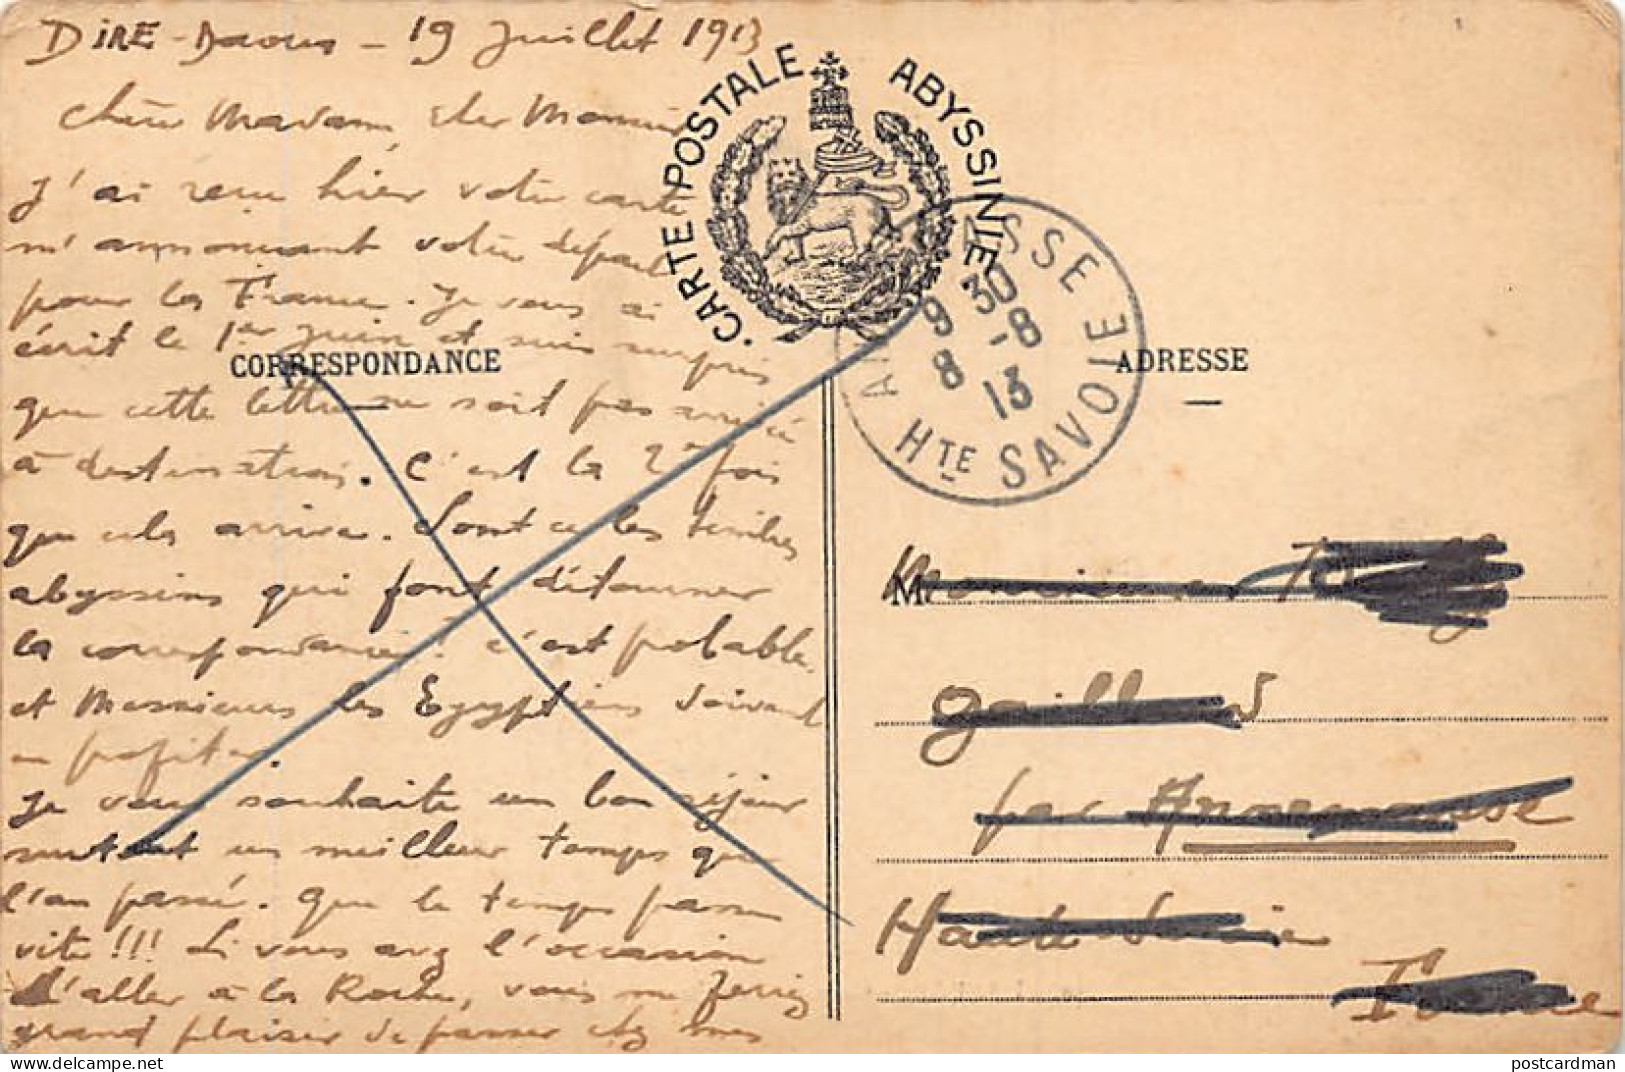 DIRE-Daoua - 19 Juillet 1913
Chère Madame, Cher Monsieur
J'ai reçu hier votre carte
m'annonçant votre départ
pour la France. Je vous ai
écrit le 1er Juin et suis surpris
que cette lettre ne soit pas arrivée
à destination. C'est la 2me fois
que cela arrive. Sont ce les timbres
abyssins qui font détourner
la correspondance? C'est probable
et Messieurs les Egyptiens doivent
en profiter.
Je vous souhaite un bon séjour
surtout un meilleur temps que
l'an passé. Que le temps passe
vite!!! Si vous avez l'occasion
d'aller à la Roche, vous me feriez
grand plaisir de passer chez mes
CARTE POSTALE ABYSSINIE
CORRESPONDANCE
ADRESSE
ANNEMASSE
9 30
8 -8
13
HTE SAVOIE
M
Monsieur
Gaillard
par Annemasse
Haute Savoie
France
postcardman